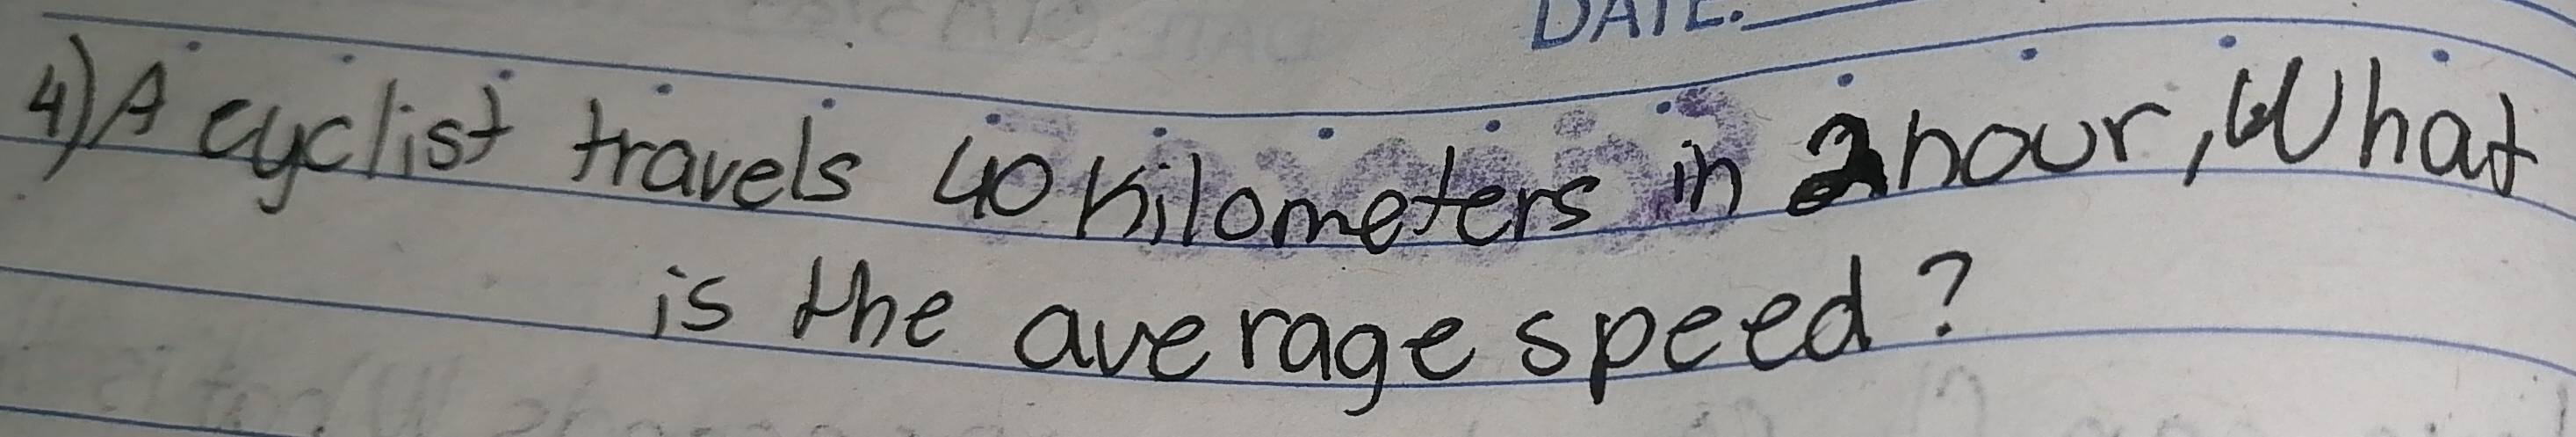 DATE:
4) A cyclist travels 40 kilometers in 2 hour, What
is the average speed?